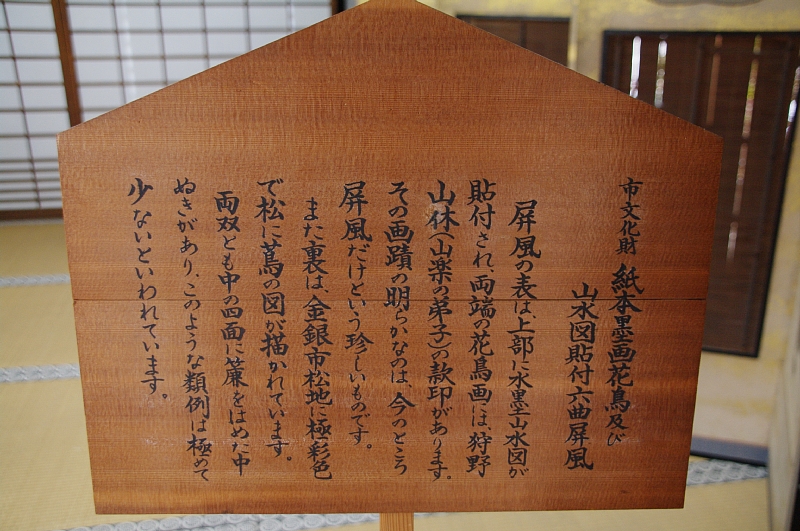 市文化財 紙本墨画花鳥及び
山水図貼付六曲屏風
屏風の表は、上部に水墨山水図が
貼付され、両端の花鳥画には、狩野
山休(山楽の弟子)の款印があります。
その画蹟の明らかなのは、今のところ
屏風だけという珍しいものです。
また裏は、金銀市松地に極彩色
で松に蔦の図が描かれています。
両双とも中の四面に簾をはめた中
ぬきがあり、このような類例は極めて
少ないといわれています。